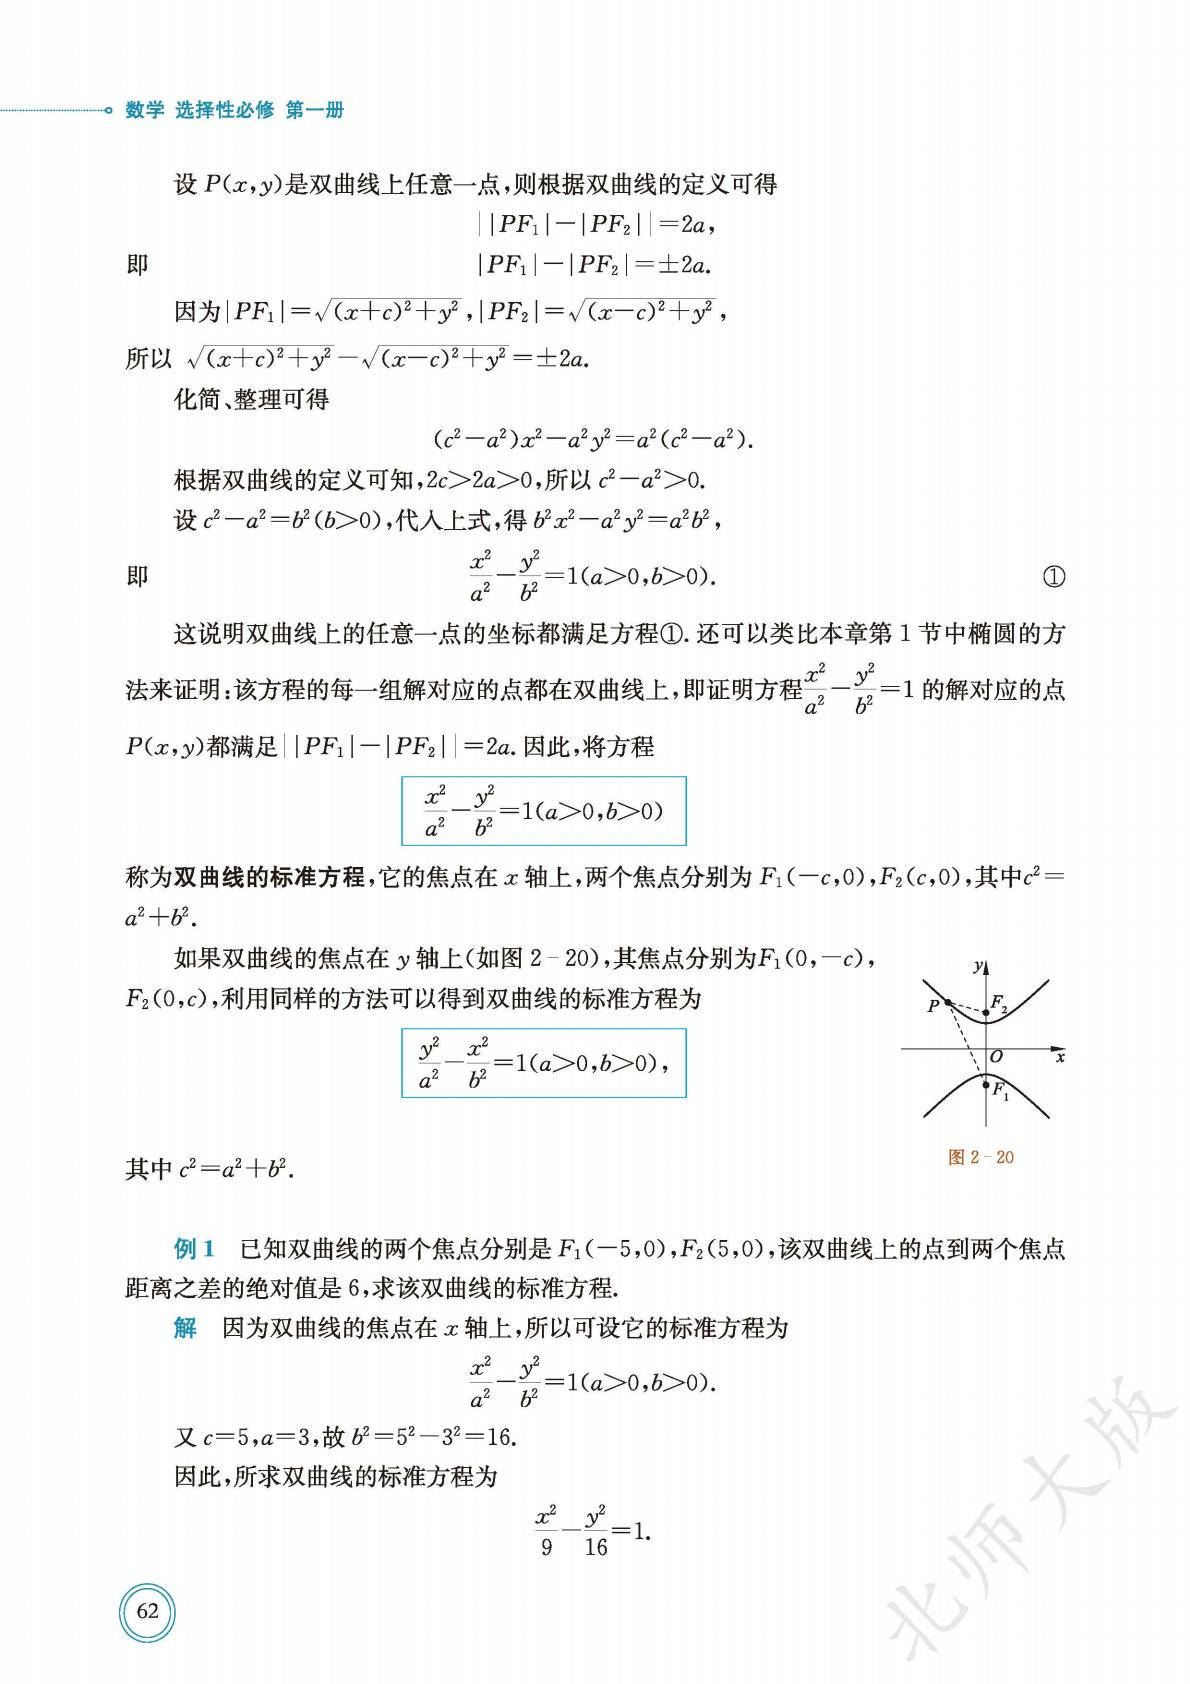 数学 选择性必修 第一册
设 P(x,y)是双曲线上任意一点,则根据双曲线的定义可得
||PF₁|-|PF₂||=2a,
即 |PF₁|-|PF₂|=±2a.
因为|PF₁|=√((x+c)²+y²),|PF₂|=√((x-c)²+y²),
所以 √((x+c)²+y²)-√((x-c)²+y²)=±2a.
化简、整理可得
(c²-a²)x²-a²y²=a²(c²-a²).
根据双曲线的定义可知,2c>2a>0,所以 c²-a²>0.
设 c²-a²=b²(b>0),代入上式,得 b²x²-a²y²=a²b²,
即 x²/a²-y²/b²=1(a>0,b>0). ①
这说明双曲线上的任意一点的坐标都满足方程①. 还可以类比本章第 1 节中椭圆的方
法来证明:该方程的每一组解对应的点都在双曲线上,即证明方程x²/a²-y²/b²=1 的解对应的点
P(x,y)都满足||PF₁|-|PF₂||=2a. 因此,将方程
x²/a²-y²/b²=1(a>0,b>0)
称为双曲线的标准方程,它的焦点在 x 轴上,两个焦点分别为 F₁(-c,0),F₂(c,0),其中c²=
a²+b².
如果双曲线的焦点在 y 轴上(如图 2-20),其焦点分别为F₁(0,-c),
F₂(0,c),利用同样的方法可以得到双曲线的标准方程为
y²/a²-x²/b²=1(a>0,b>0),
其中 c²=a²+b².
y
P
F₂
O
x
F₁
图 2-20
例 1 已知双曲线的两个焦点分别是 F₁(-5,0),F₂(5,0),该双曲线上的点到两个焦点
距离之差的绝对值是 6,求该双曲线的标准方程.
解 因为双曲线的焦点在 x 轴上,所以可设它的标准方程为
x²/a²-y²/b²=1(a>0,b>0).
又 c=5,a=3,故 b²=5²-3²=16.
因此,所求双曲线的标准方程为
x²/9-y²/16=1.
62
北师大版